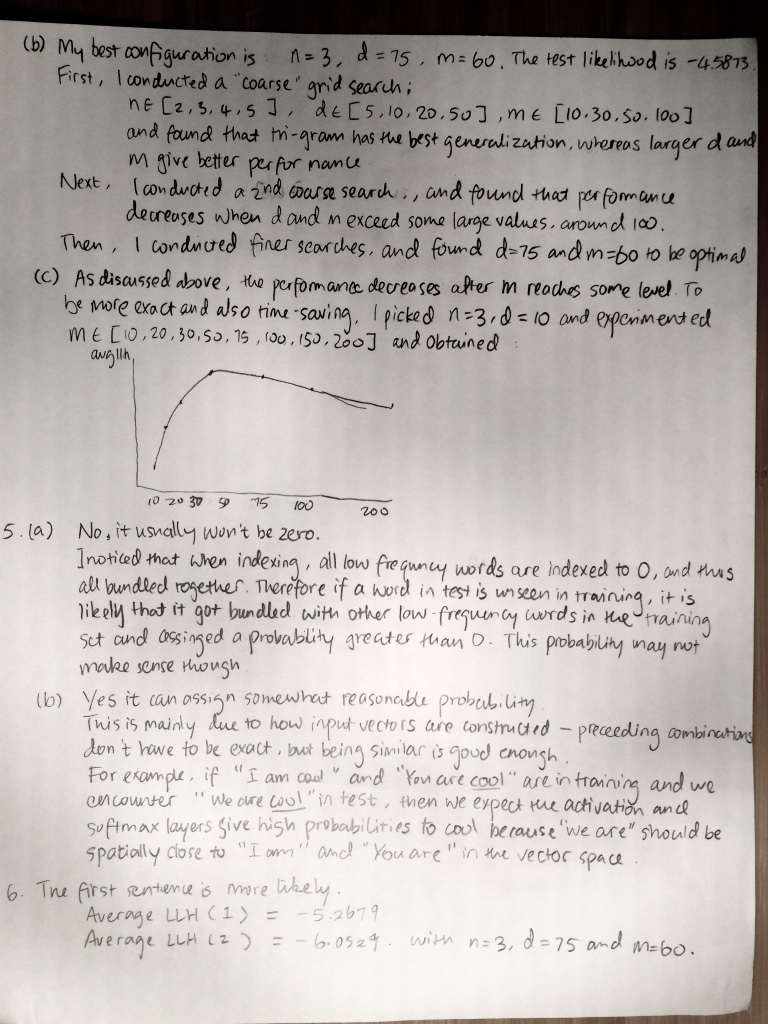 (b) My best configuration is : n=3, d=75, m=60. The test likelihood is -4.5873.
First, I conducted a "coarse" grid search;
n∈[2,3,4,5], d∈[5,10,20,50], m∈[10,30,50,100]
and found that tri-gram has the best generalization, whereas larger d and
m give better performance
Next, I conducted a 2nd coarse search., and found that performance
decreases when d and m exceed some large values, around 100.
Then, I conducted finer searches, and found d=75 and m=60 to be optimal
(c) As discussed above, the performance decreases after m reaches some level. To
be more exact and also time-saving, I picked n=3, d=10 and experimented
m∈[10,20,30,50,75,100,150,200] and obtained :
avg llh
10 20 30 50 75 100 200
5. (a) No, it usually won't be zero.
I noticed that when indexing, all low frequncy words are indexed to 0, and thus
all bundled together. Therefore if a word in test is unseen in training, it is
likely that it got bundled with other low-frequency words in the training
set and assinged a probablity greater than 0. This probability may not
make sense though
(b) Yes it can assign somewhat reasonable probability.
This is mainly due to how input vectors are constructed – preceeding combinations
don't have to be exact, but being similar is good enough.
For example, if "I am cool" and "You are cool" are in training and we
encounter "We are cool" in test, then we expect the activation and
softmax layers give high probabilities to cool because "we are" should be
spatially close to "I am" and "You are" in the vector space.
6. The first sentence is more likely.
Average LLH (1) = -5.2679
Average LLH (2) = -6.0529. with n=3, d=75 and m=60.